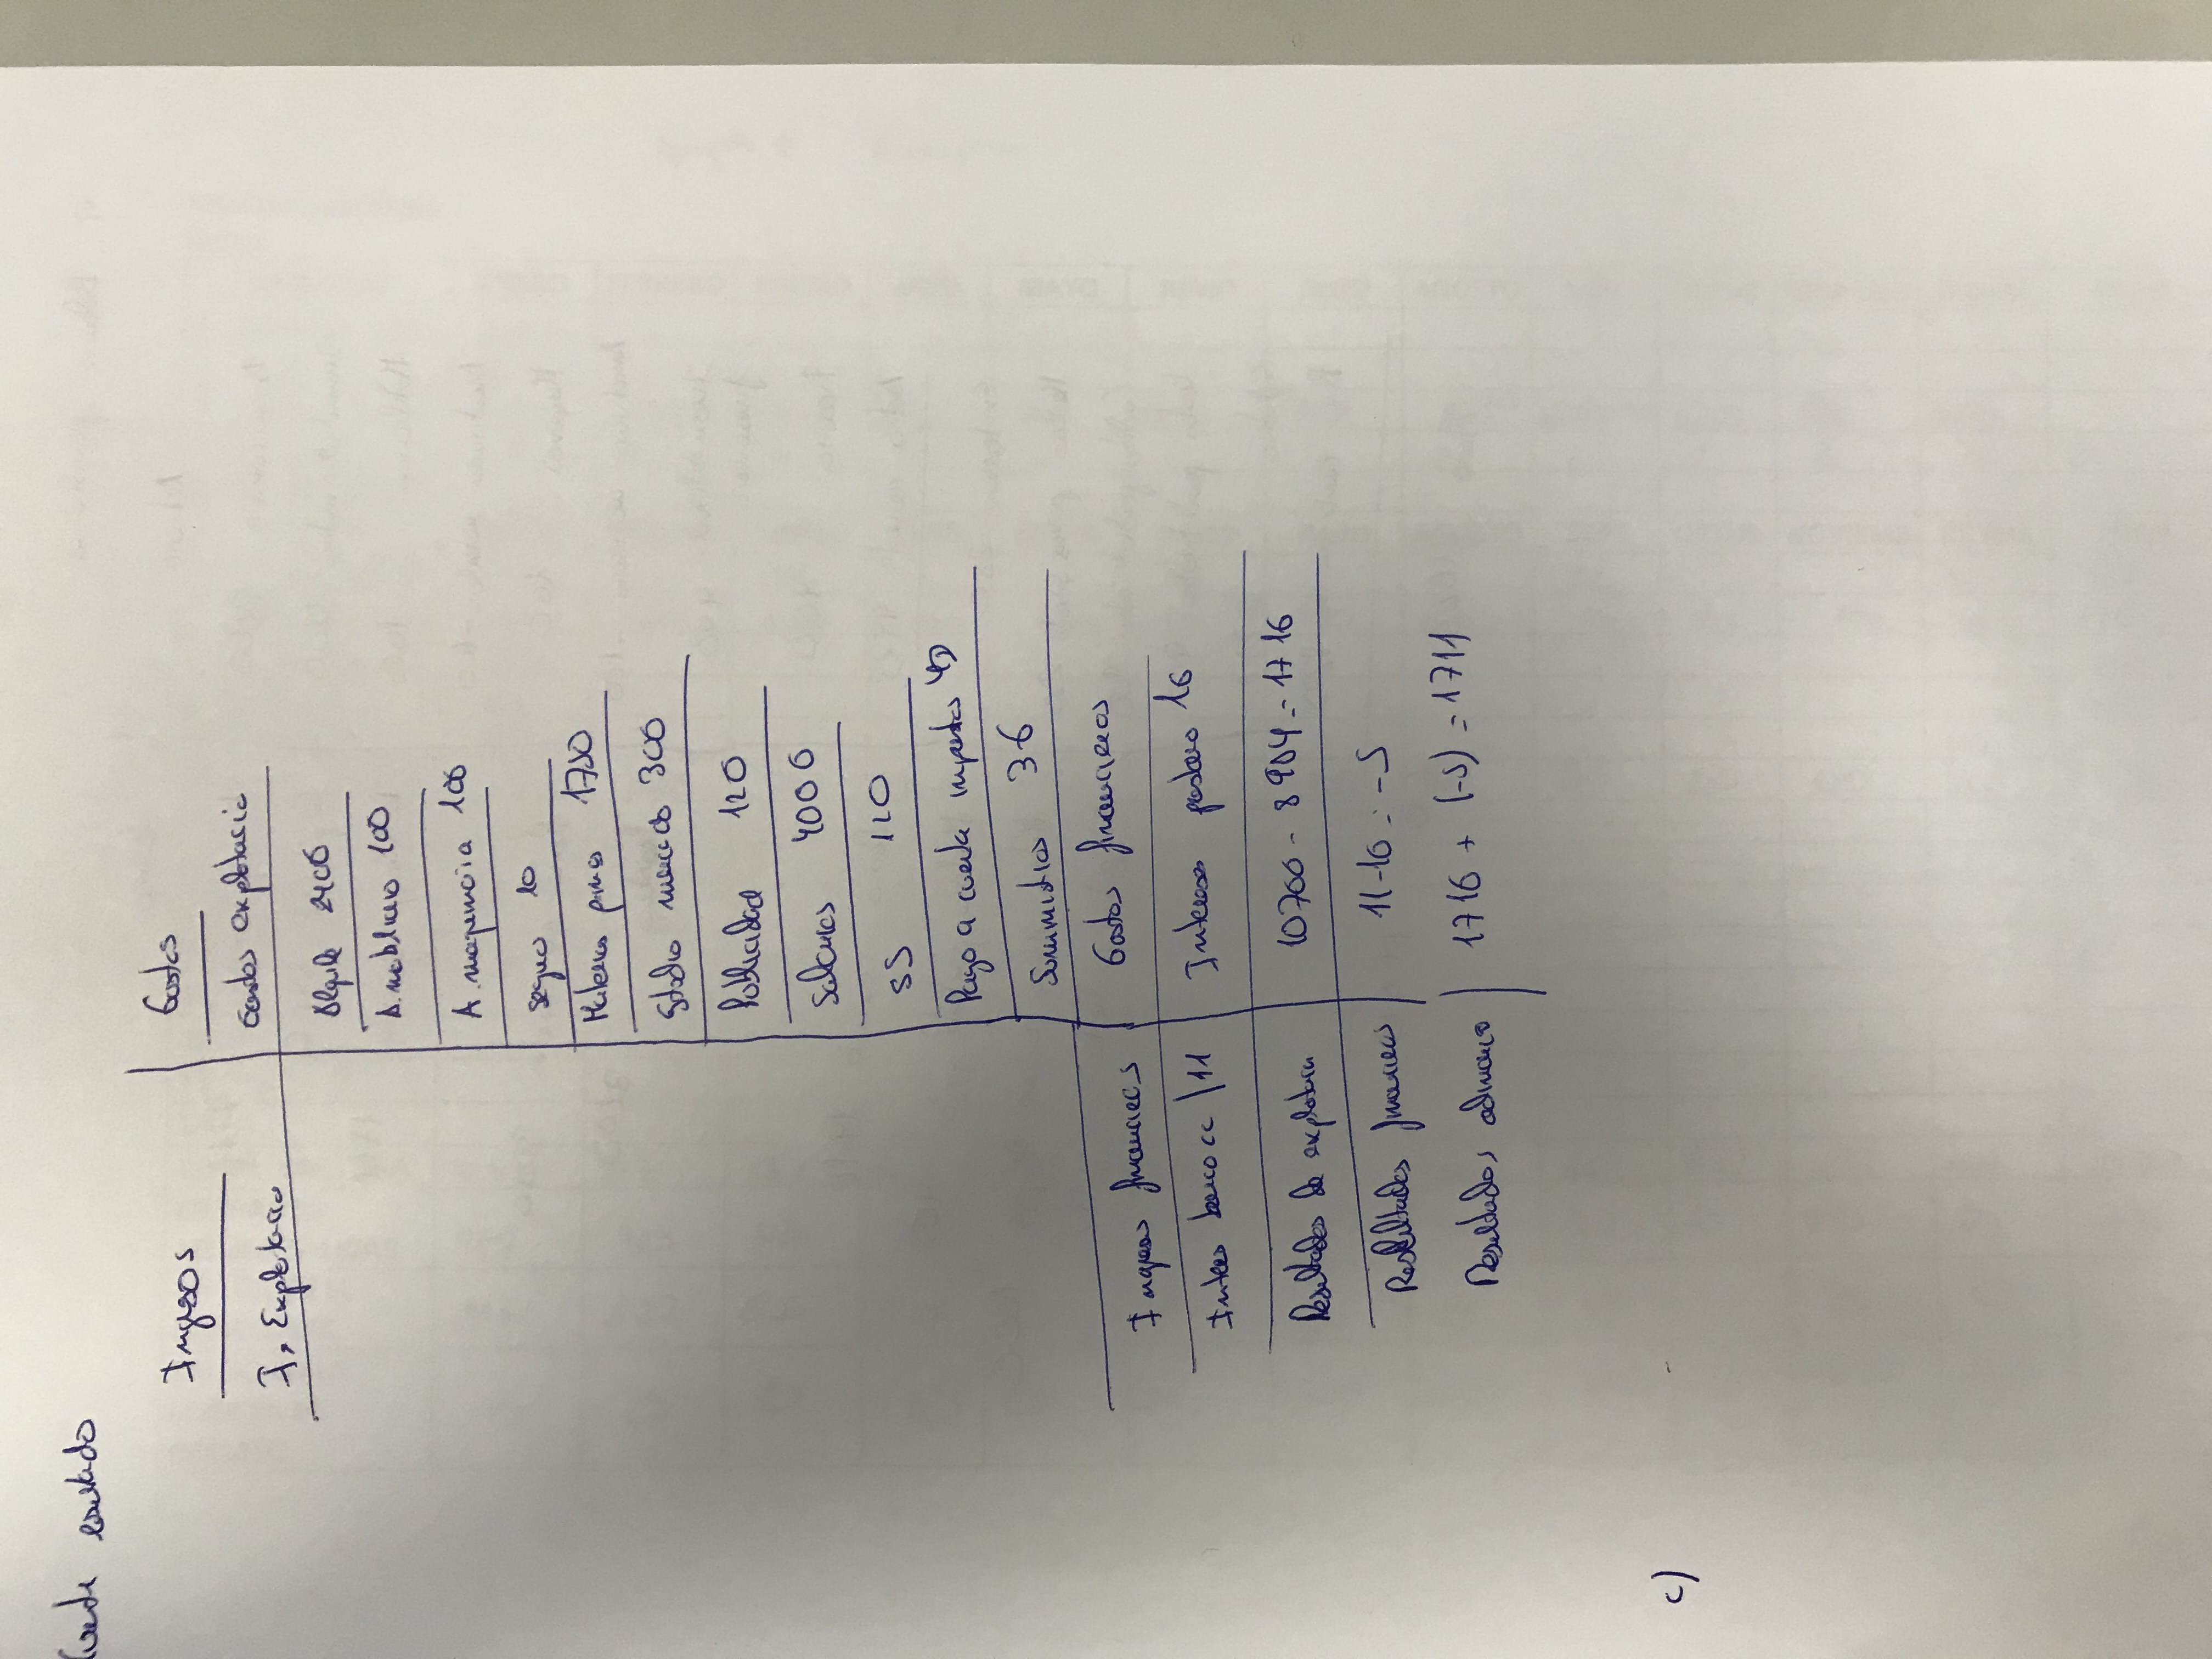 Ingresos
Gastos
I. Explotacio
Gastos explotacio
Alquile 2400
A. mobiliario 100
A. maquinaria 100
seguro 10
Materias primas 1750
Estudio mercado 300
Publicidad 120
Salarios 4000
SS 120
Pago a cuenta impuestos
Suministros 36
Ingresos financieros
Gastos financieros
Interes banco cc | 11
Intereses prestamo 16
Resultados de explotacion
10700 - 8984 = 1716
Resultados financieros
11-16 = -5
Resultados ordinario
1716 + (-5) = 1711
c)